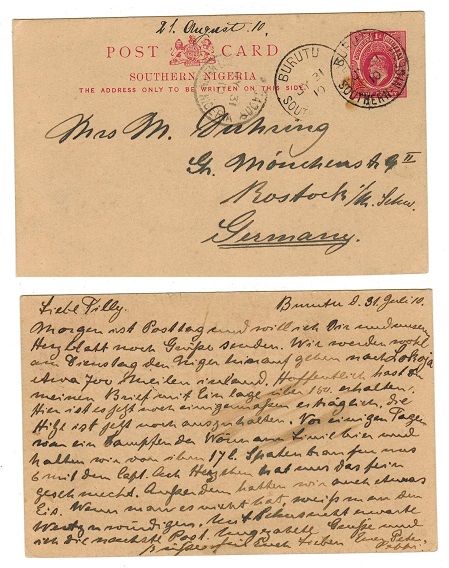 21. August. 10.
POST CARD
SOUTHERN NIGERIA
THE ADDRESS ONLY TO BE WRITTEN ON THIS SIDE
BURUTU
31
10
SOUTHERN NIGERIA
Mrs M. Duhring
Gr. Mönchenstr. 9 II
Rostock i/M. Schw.
Germany.
Liebe Tilly. Burutu d. 31. Juli 10.
Morgen ist Posttag und will ich Dir und unsern
Herzblatt noch Grüße senden. Wir werden wohl
am Dienstag den Niger hinauf gehen nach Lokoja
etwa 700 Meilen inland. Hoffentlich hast Du
meinen Brief mit Einlage über 150. erhalten.
Hier ist es jetzt noch einigermaßen erträglich, die
Hitze ist jetzt noch auszuhalten. Vor einigen Tagen
war ein Dampfer der Woermann Linie hier und
hatten wir von ihm
mit dem Capt. Ach Herzchen hat uns das fein
geschmeckt. Außerdem hatten wir auch etwas
Eis. Wenn man es nicht hat, weiß man den
Wert zu würdigen. Mit Sehnsucht erwarte
ich die nächste Post. Grüße und
Euch lieben Euer